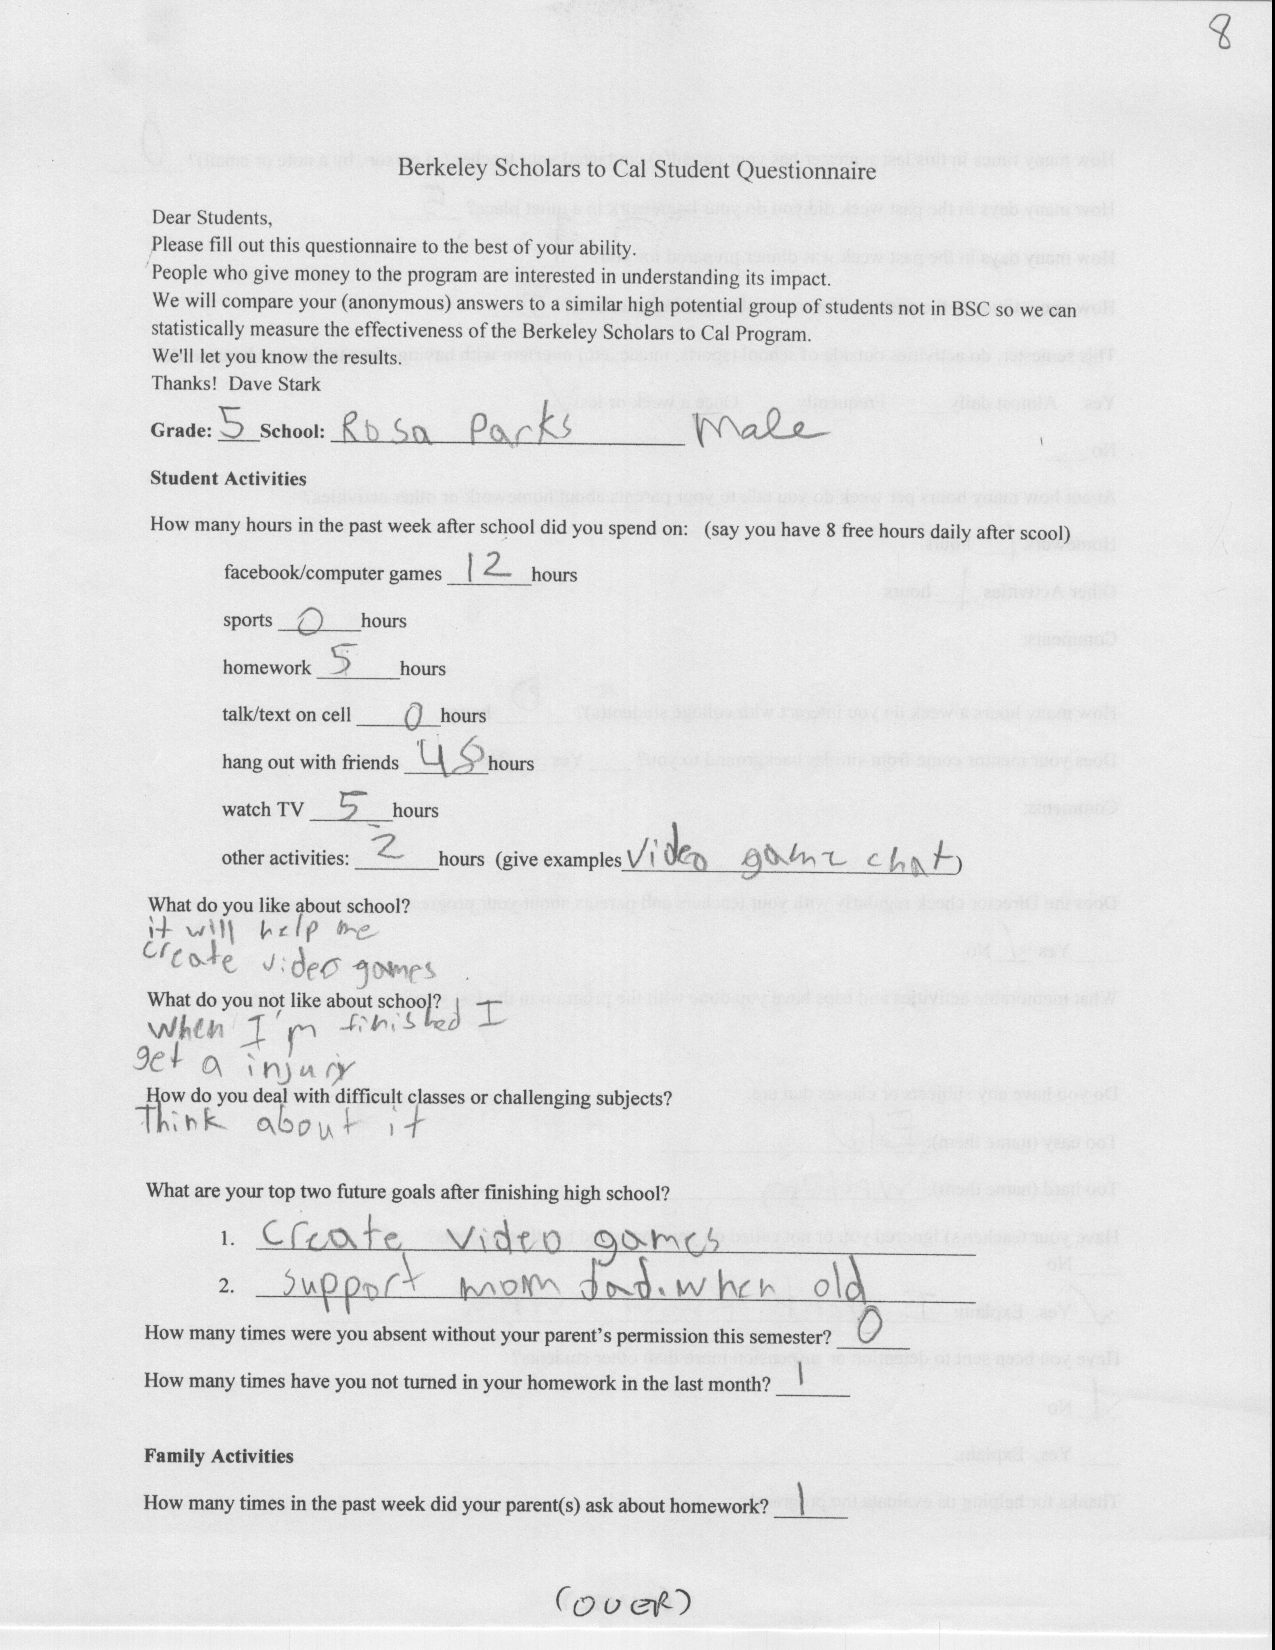 8
Berkeley Scholars to Cal Student Questionnaire
Dear Students,
Please fill out this questionnaire to the best of your ability.
People who give money to the program are interested in understanding its impact.
We will compare your (anonymous) answers to a similar high potential group of students not in BSC so we can
statistically measure the effectiveness of the Berkeley Scholars to Cal Program.
We'll let you know the results.
Thanks! Dave Stark
Grade: 5 School: Rosa Parks Male
Student Activities
How many hours in the past week after school did you spend on: (say you have 8 free hours daily after scool)
facebook/computer games 12 hours
sports 0 hours
homework 5 hours
talk/text on cell 0 hours
hang out with friends 48 hours
watch TV 5 hours
other activities: 2 hours (give examples video game chat)
What do you like about school?
it will help me
create video games
What do you not like about school?
When I'm finished I
get a injury
How do you deal with difficult classes or challenging subjects?
Think about it
What are your top two future goals after finishing high school?
1. Create video games
2. support mom dad. when old
How many times were you absent without your parent's permission this semester? 0
How many times have you not turned in your homework in the last month? 1
Family Activities
How many times in the past week did your parent(s) ask about homework? 1
(OVER)